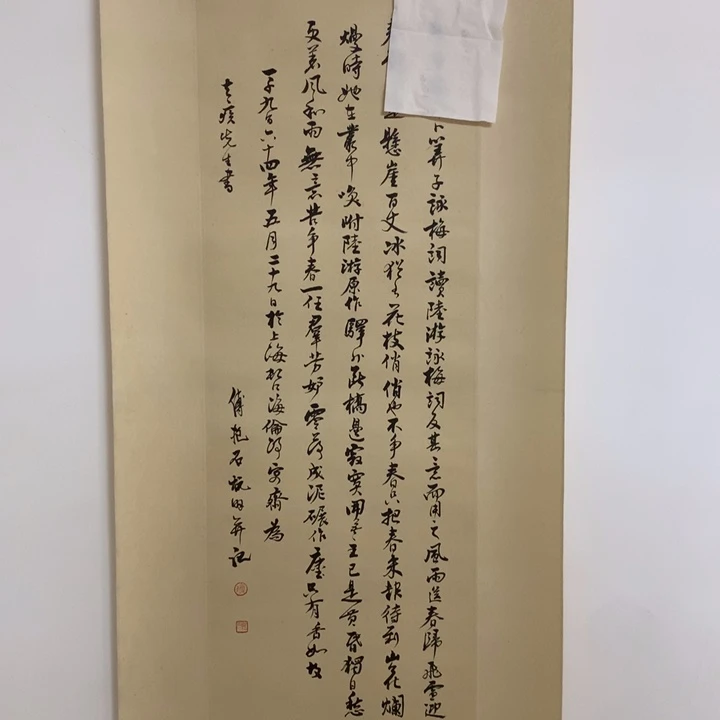 卜算子詠梅詞讀陸游詠梅詞反其意而用之風雨送春歸飛雪迎
春 懸崖百丈冰猶有花枝俏俏也不爭春只把春來報待到山花爛
熳時她在叢中咲附陸游原作驛外斷橋邊寂寞開無主已是黃昏獨自愁
更著風和雨無意苦爭春一任羣芳妒零落成泥碾作塵只有香如故
一千九百六十四年五月二十九日於上海 口海倫路寓齋為
去疾先生書
傅抱石 并記